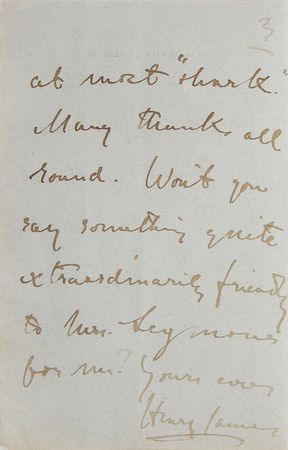 3
at most "shark."
Many thanks all
round. Won't you
say something quite
extraordinarily friendly
to Mrs. Seymour
for me? Yours ever
Henry James